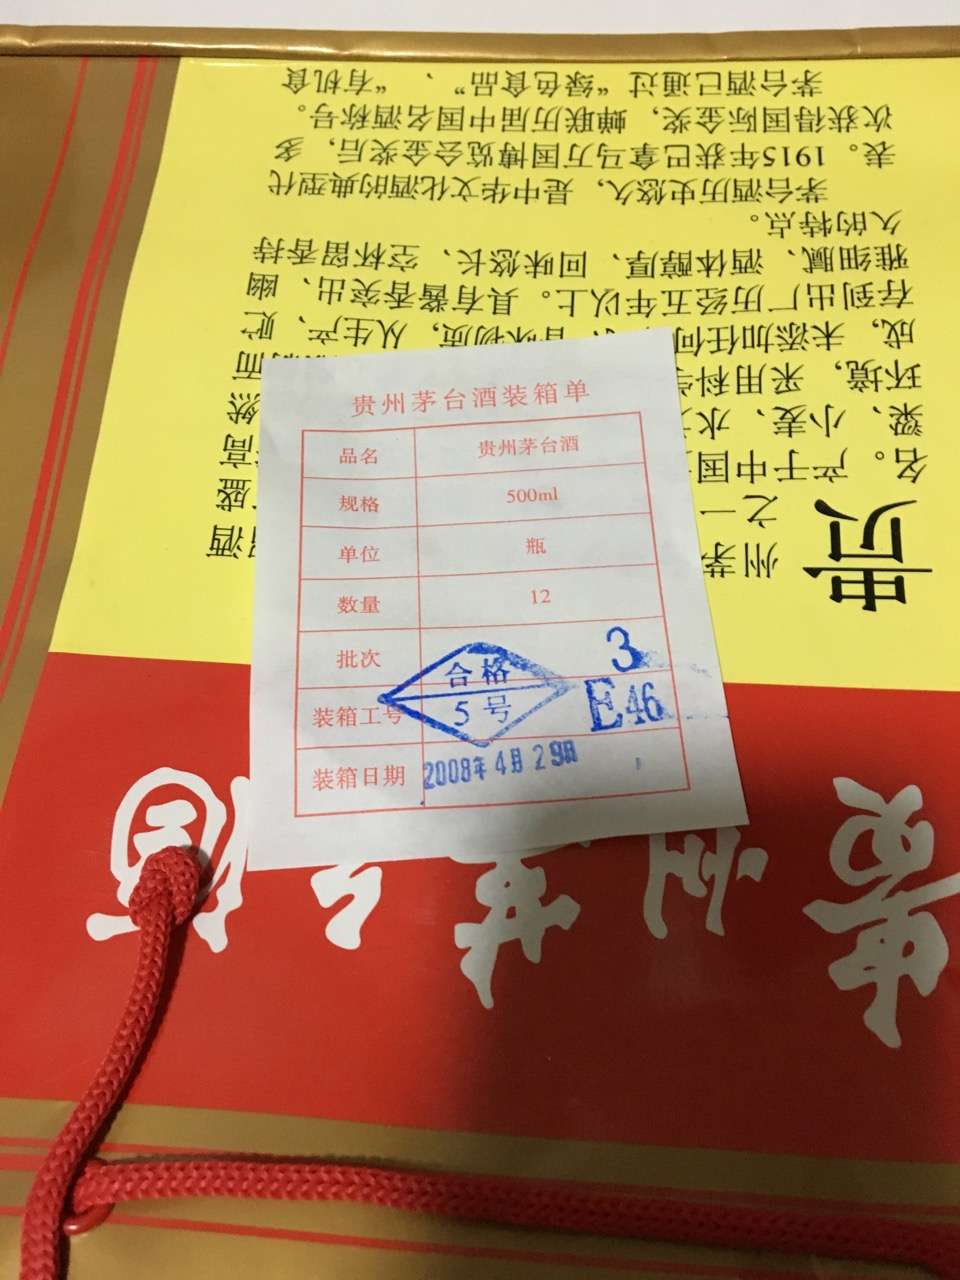 贵州茅台酒装箱单
品名 贵州茅台酒
规格 500ml
单位 瓶
数量 12
批次
装箱工号
装箱日期 2008年4月29日
合格
5号
3
E46
贵
州茅
酒
之一
盛
名。产于中国
高
粱、小麦、水
然
环境，采用科
而
成，未添加任何
香味物质，从生产、贮
存到出厂历经五年以上。具有酱香突出、幽
雅细腻、酒体醇厚、回味悠长、空杯留香持
久的特点。
茅台酒历史悠久，是中华文化酒的典型代
表。1915年获巴拿马万国博览会金奖后，多
次获得国际金奖，蝉联历届中国名酒称号。
茅台酒已通过“绿色食品”、“有机食
贵州茅台酒